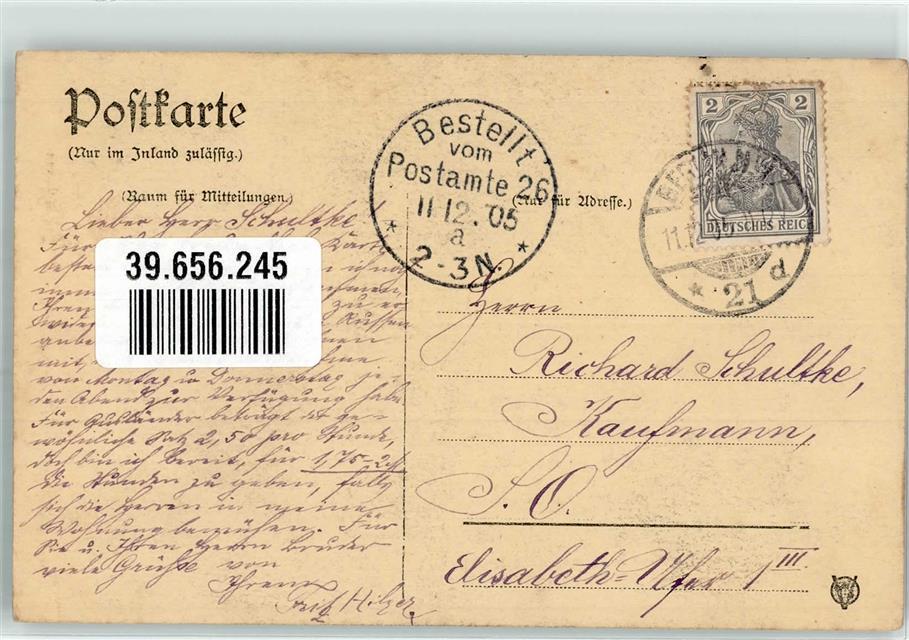 Postkarte
(Nur im Inland zulässig.)
(Raum für Mitteilungen)
(Nur für Adresse.)
Bestellt
vom
Postamte 26
11 12. 05
a
2-3N
2 2
DEUTSCHES REICH
21 d
39.656.245
Lieber Herr Schultke!
Für
beste
ich
zu er
Russen
mit,
von Montag u Donnerstag je
den Abend zur Verfügung habe
Für Ausländer beträgt der ge-
wöhnliche Satz 2,50 pro Stunde,
doch bin ich bereit, für 1,75-2M
die Stunden zu geben, falls
sich die Herren in meine
Wohnung bemühen. Für
Sie u. Ihren Herrn Bruder
viele Grüße von
Ihrem
Fritz Hilger.
Herrn
Richard Schultke,
Kaufmann,
S. O.
Elisabeth-Ufer 1 III.